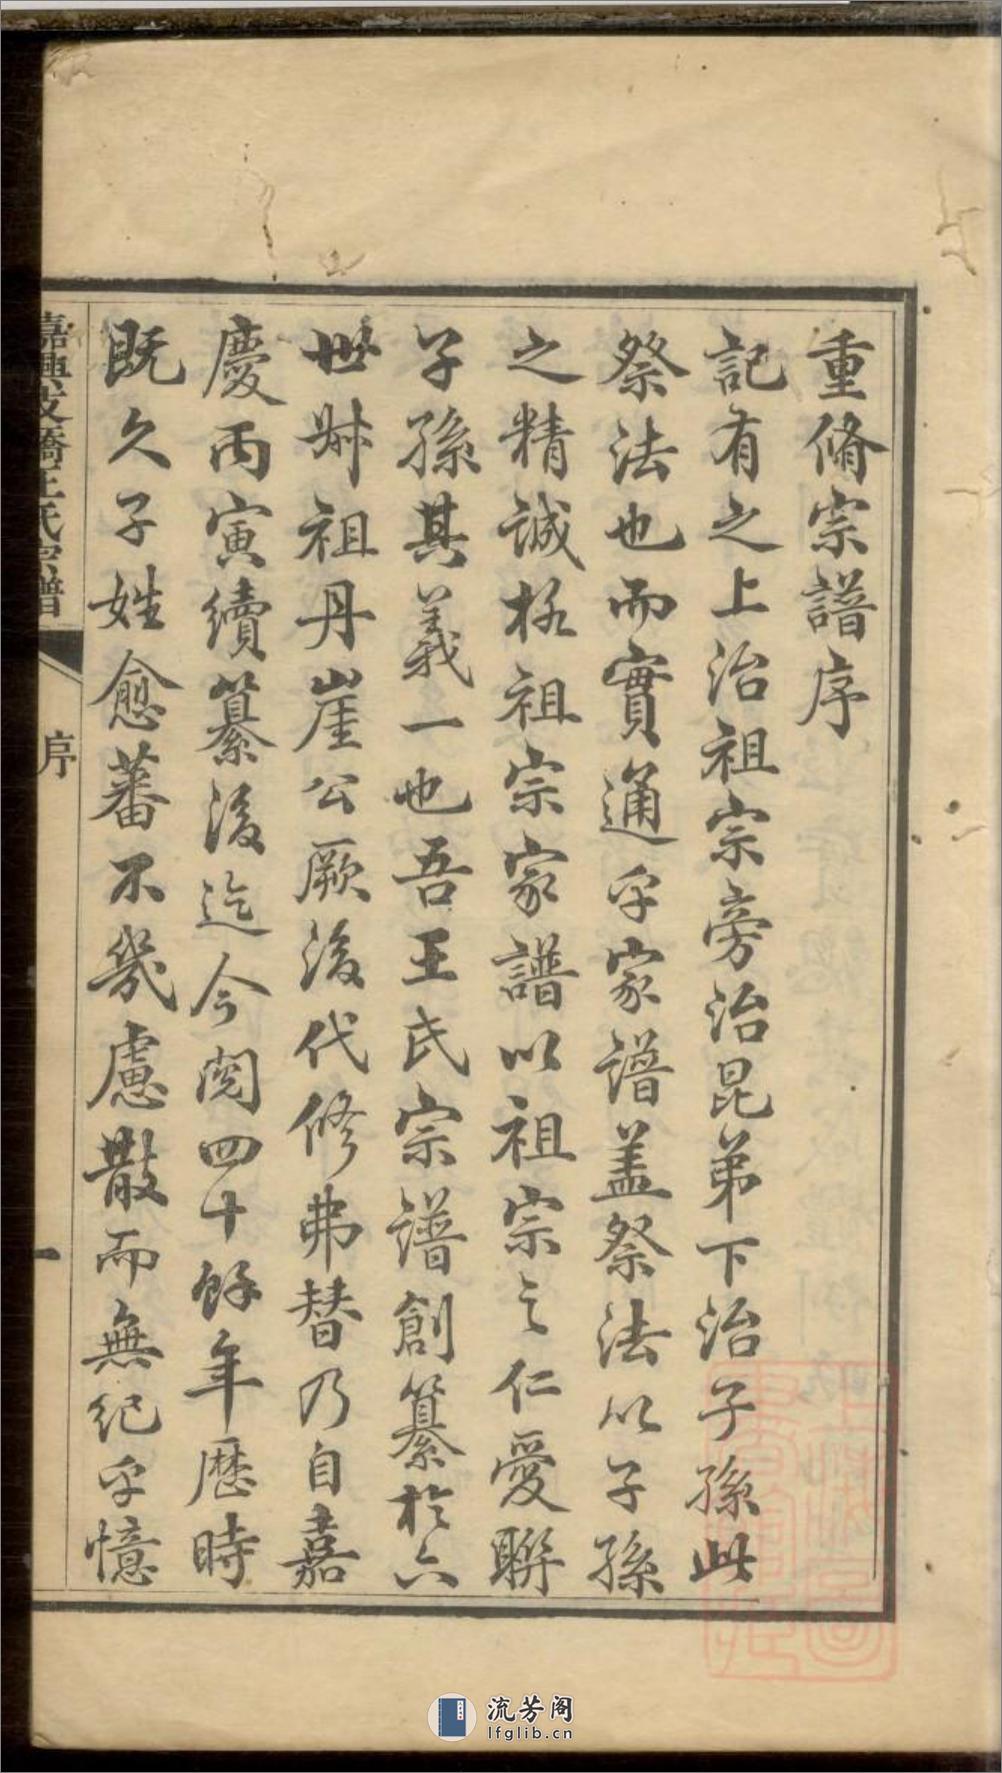 重脩宗譜序
記有之上治祖宗旁治昆弟下治子孫此
祭法也而實通乎家譜盖祭法以子孫
之精誠格祖宗家譜以祖宗之仁愛聨
子孫其義一也吾王氏宗譜創纂於六
世叔祖丹崖公厥後代修弗替乃自嘉
慶丙寅續纂後迄今閱四十餘年歷時
既久子姓愈蕃不幾慮散而無紀乎憶
嘉興 橋王氏宗譜
序
一
流芳阁
lfglib.cn